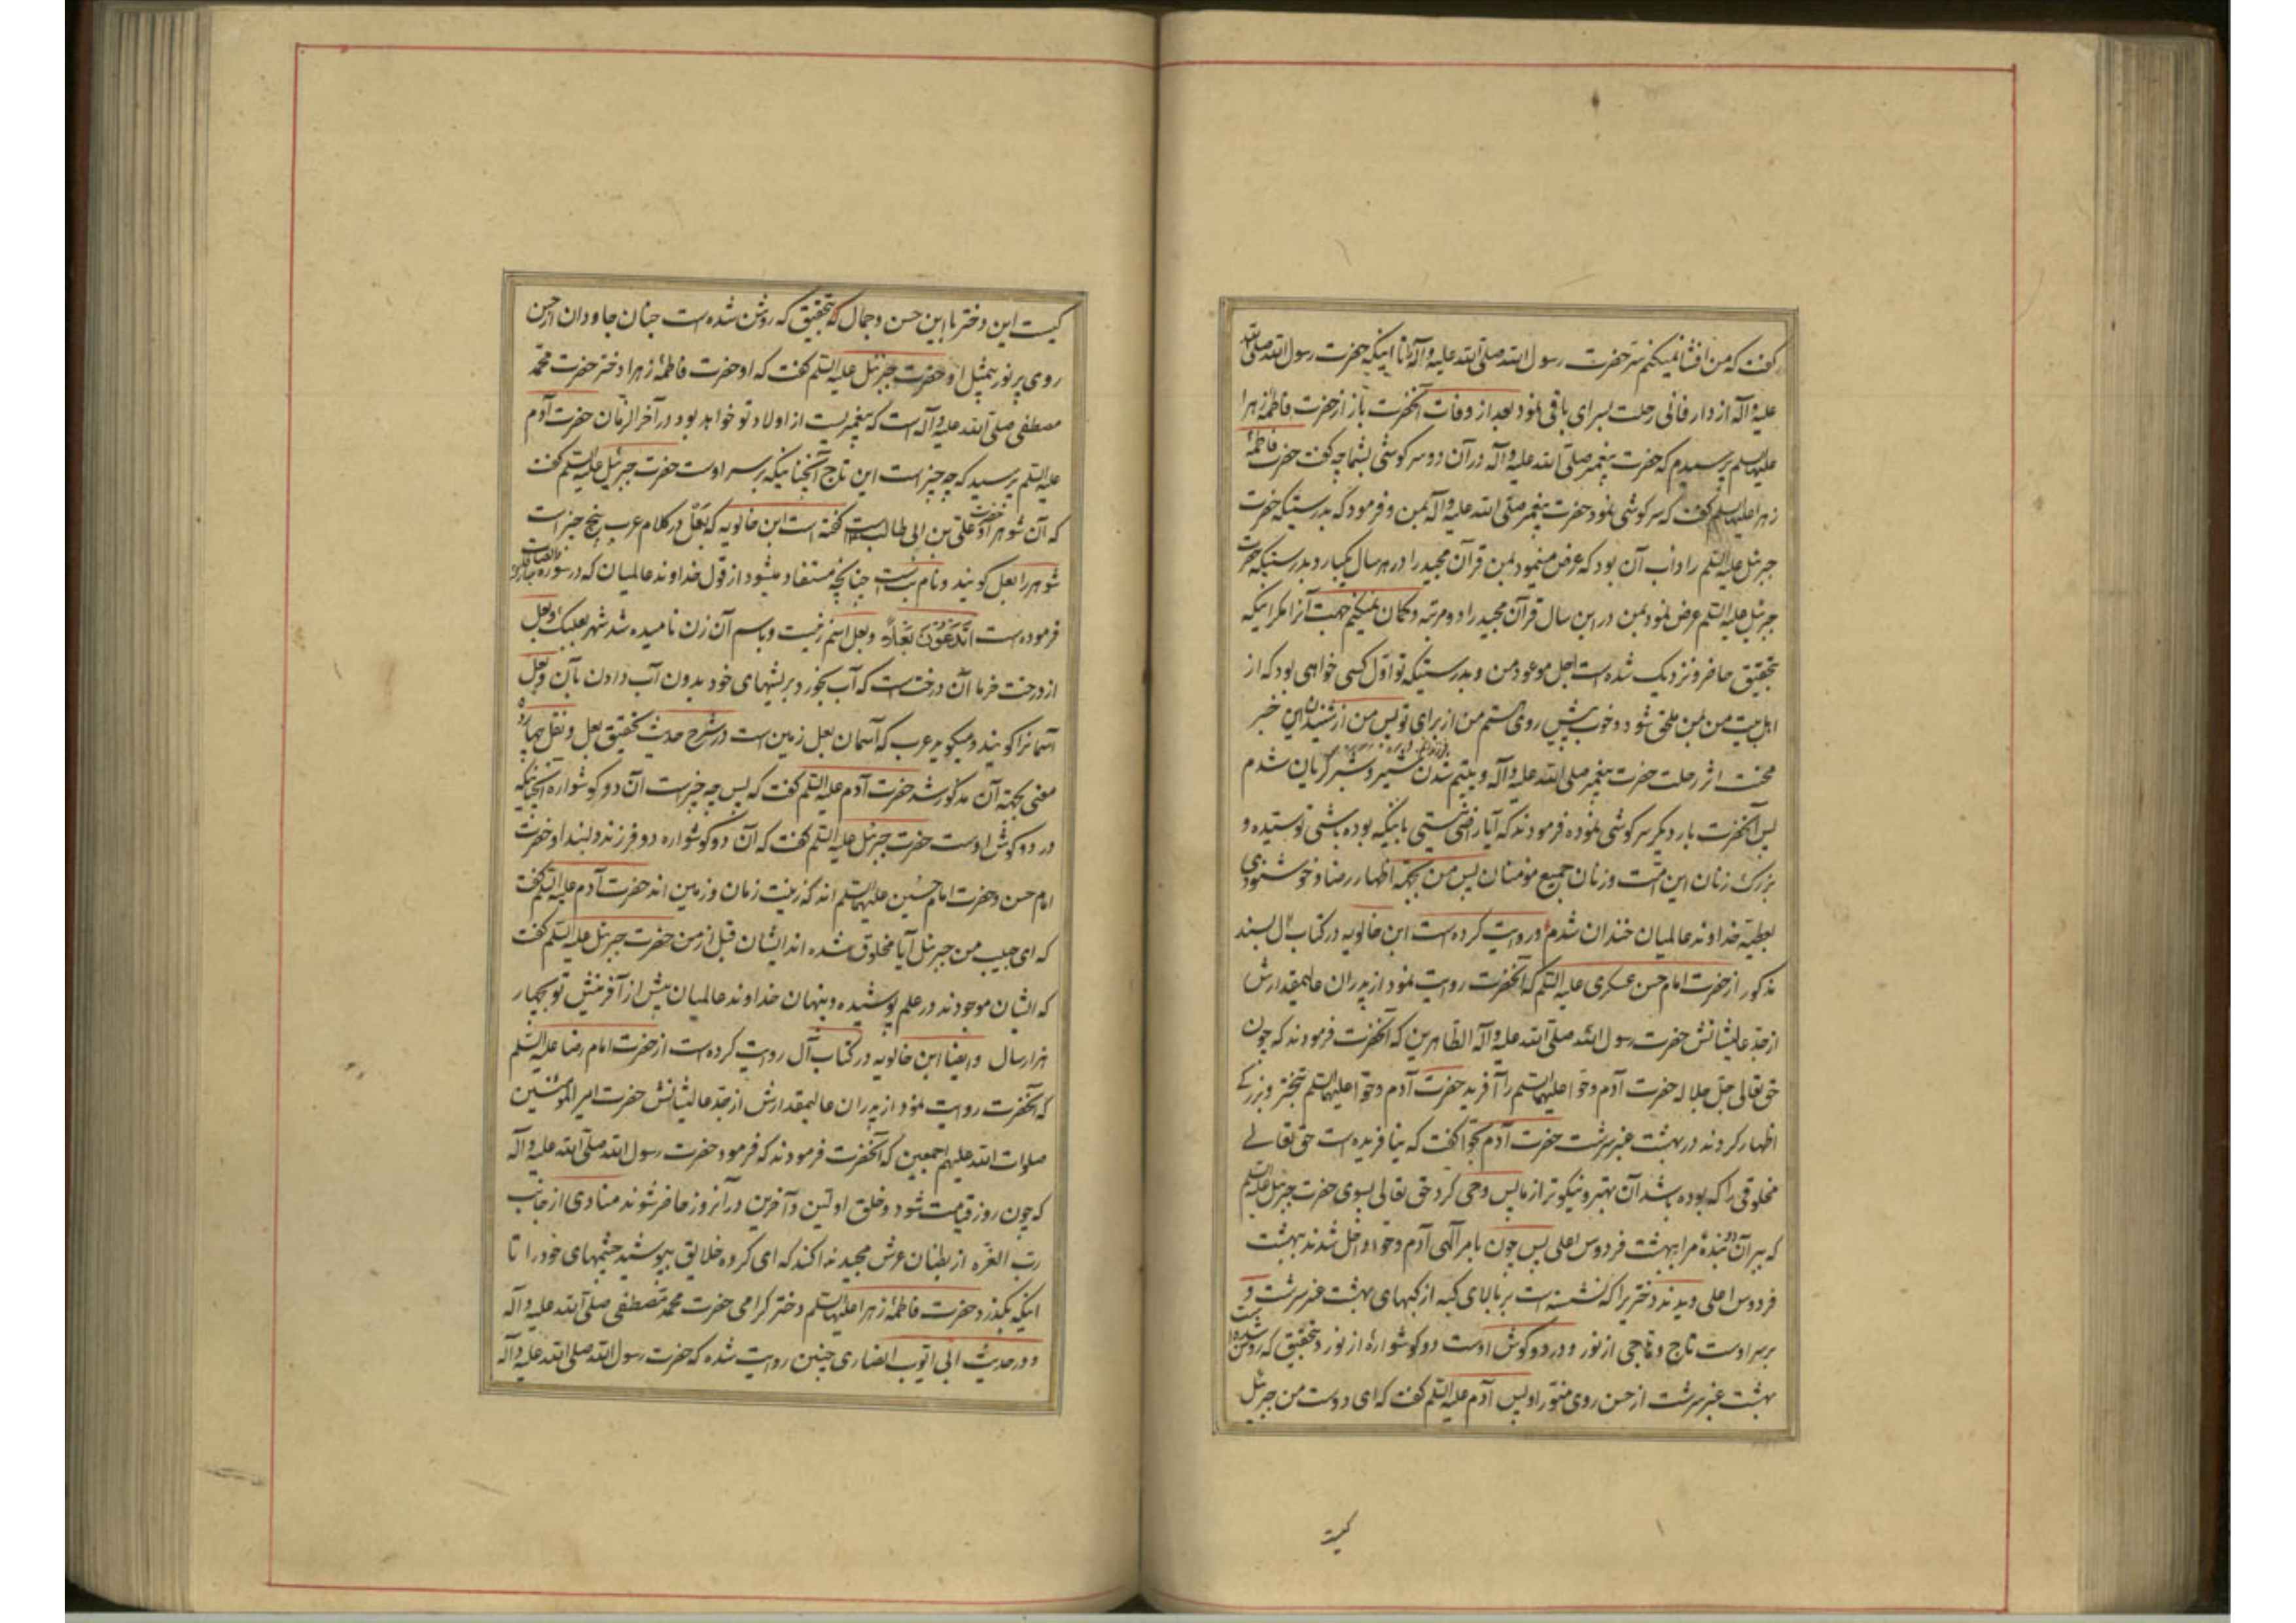 گفت که من افشا نمیکنم سر حضرت رسول الله صلی الله علیه وآله را تا اینکه حضرت رسول الله صلی الله
علیه وآله از دار فانی رحلت بسرای باقی نمود بعد از وفات آنحضرت باز از حضرت فاطمهٔ زهرا
علیها السلم پرسیدم که حضرت پیغمبر صلی الله علیه وآله در آن دو سرکوشی بشما چه گفت حضرت فاطمهٔ
زهرا علیها السلم گفت که سرکوشی نمود حضرت پیغمبر صلی الله علیه وآله بمن و فرمود که بدرستیکه حضرت
جبرئل علیه السلم را داب آن بود که عرض مینمود بمن قرآن مجید را در هر سال یکبار و بدرستیکه حضرت
جبرئل علیه السلم عرض نمود بمن در این سال قرآن مجید را دو مرتبه و کمان نمیکنم جهت آنرا مکر اینکه
بتحقیق حاضر و نزدیک شده است اجل موعود من و بدرستیکه تو اول کسی خواهی بود که از
اهل بیت من بمن ملحق شود و خوب پیش روی هستم من از برای تو پس من از شنیدن این خبر
محنت اثر رحلت حضرت پیغمبر صلی الله علیه وآله و یتیم شدن شبیر و شبر گریان شدم
پس آنحضرت بار دیکر سرکوشی نموده فرمودند که آیا راضی نیستی باینکه بوده باشی تو سیده و
بزرک زنان این امت و زنان جمیع مومنان پس من بجهة اظهار رضا و خوشنودی
بعطیهٔ خداوند عالمیان خندان شدم و روایت کرده است ابن خالویه در کتاب آل بسند
مذکور از حضرت امام حسن عسکری علیه السلم که آنحضرت روایت نمود از پدران عالیمقدارش
از جد عالیشانش حضرت رسول الله صلی الله علیه وآله الطاهرین که آنحضرت فرمودند که چون
حق تعالی جل جلاله حضرت آدم و حوا علیهما السلم را آفرید حضرت آدم و حوا علیهما السلم تبختر و بزرکی
اظهار کردند در بهشت عنبر سرشت حضرت آدم بحوا گفت که نیافریده است حق تعالی
مخلوقی را که بوده باشد آن بهتر و نیکوتر از ما پس وحی کرد حق تعالی بسوی حضرت جبرئل علیه السلم
که ببر آن دو بندهٔ مرا ببهشت فردوس اعلی پس چون بامر الهی آدم و حوا داخل شدند ببهشت
فردوس اعلی دیدند دختریرا که نشسته است بر بالای کبه از کبهای بهشت عنبر سرشت و
بر سر اوست تاج و تاجی از نور و در دو کوش اوست دو کوشواره از نور و بتحقیق که روشن شده است
بهشت عنبر سرشت از حسن روی منور او پس آدم علیه السلم گفت که ای دوست من جبرئل
کیست
کیست این دختر با این حسن و جمال که بتحقیق که روشن شده است جنان جاودان از حسن
روی پر نور بیمثل او حضرت جبرئل علیه السلم گفت که او حضرت فاطمهٔ زهرا دختر حضرت محمد
مصطفی صلی الله علیه وآله است که پیغمبریست از اولاد تو خواهد بود در آخر الزمان حضرت آدم
علیه السلم پرسید که چه چیز است این تاج آنچنانیکه بر سر اوست حضرت جبرئیل علیه السلم گفت
که آن شوهر او حضرت علی بن ابی طالب است گفته است ابن خالویه که بعل در کلام عرب پنج چیز است
شوهر را بعل کویند و نام بت است چنانچه مستفاد میشود از قول خداوند عالمیان که در سوره والصافات
فرموده است اتدعون بعلا و بعل اسم زنیست و باسم آن زن نامیده شد شهر بعلبک و بعل
از درخت خرما آن درخت است که آب بخورد بریشهای خود بدون آب دادن بآن و بعل
آسمانرا کویند و میکوید عرب که آسمان بعل زمین است در شرح حدیث تحقیق بعل و نقل
معنی بجهة آن مذکور شد حضرت آدم علیه السلم گفت که پس چه چیز است آن دو کوشواره آنچنانیکه
در دو کوش اوست حضرت جبرئل علیه السلم گفت که آن دو کوشواره دو فرزند دلبند او حضرت
امام حسن و حضرت امام حسین علیهما السلم اند که زینت زمان و زمین اند حضرت آدم علیه السلم گفت
که ای حبیب من جبرئل آیا مخلوق شده اند ایشان قبل از من حضرت جبرئل علیه السلم گفت
که ایشان موجودند در علم پوشیده و پنهان خداوند عالمیان پیش از آفرینش تو بچهار
هزار سال و ایضا ابن خالویه در کتاب آل روایت کرده است از حضرت امام رضا علیه السلم
که آنحضرت روایت نمود از پدران عالیمقدارش از جد عالیشانش حضرت امیر المؤمنین
صلوات الله علیهم اجمعین که آنحضرت فرمودند که فرمود حضرت رسول الله صلی الله علیه وآله
که چون روز قیامت شود و خلق اولین و آخرین در آنروز حاضر شوند منادی از جانب
رب العزه از بطنان عرش مجید ندا کند که ای کروه خلایق بپوشید چشمهای خود را تا
اینکه بکذرد حضرت فاطمهٔ زهرا علیها السلم دختر کرامی حضرت محمد مصطفی صلی الله علیه وآله
و در حدیث ابی ایوب انصاری چنین روایت شده که حضرت رسول الله صلی الله علیه وآله